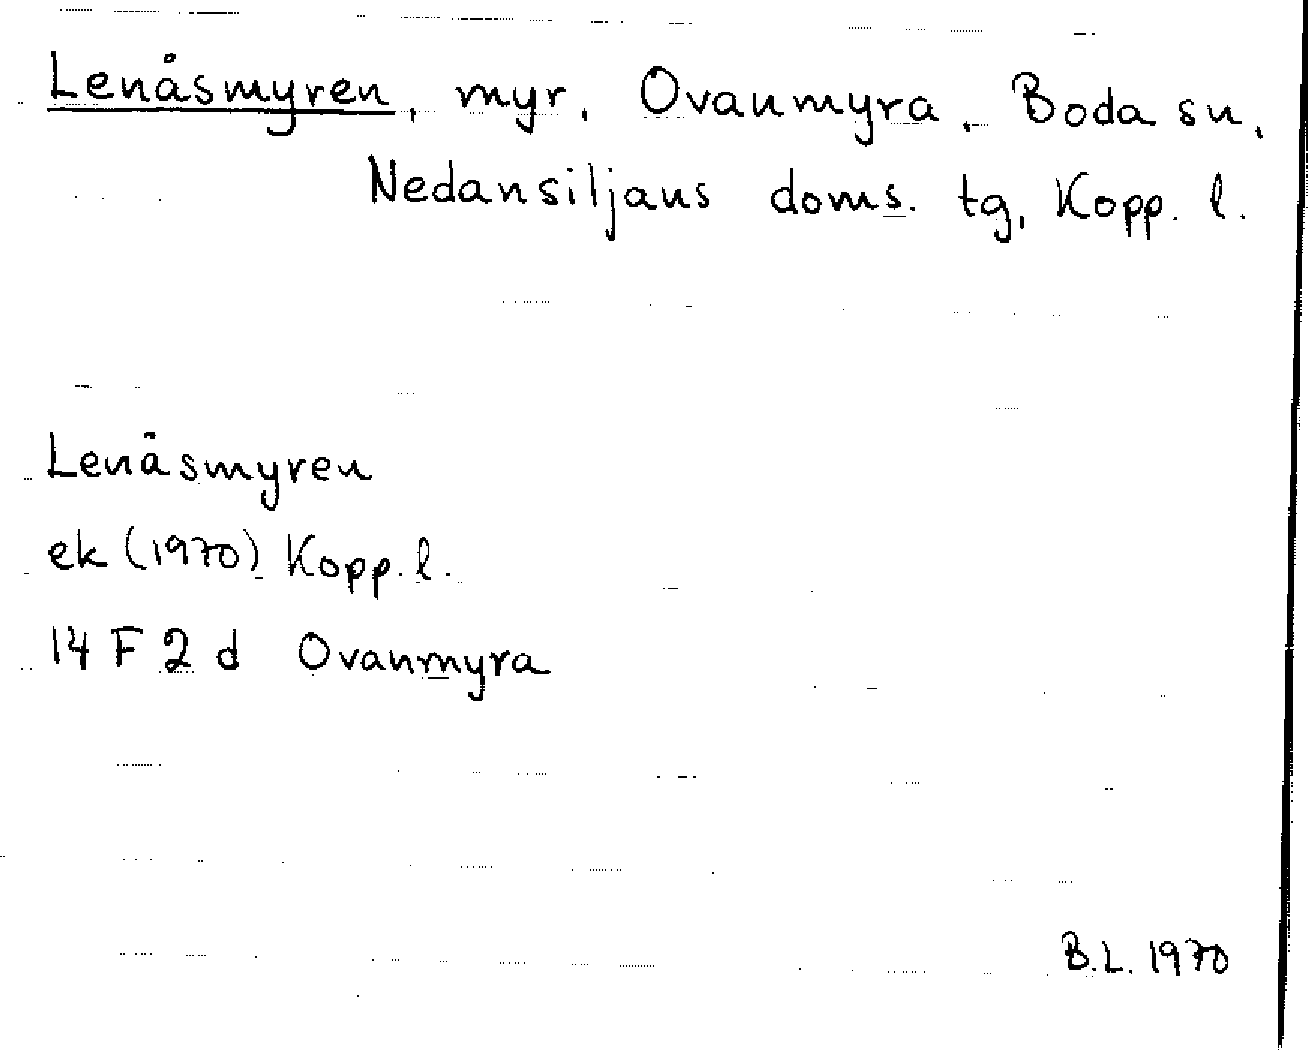 Lenåsmyren, myr, Ovanmyra, Boda sn,
Nedansiljans doms. tg, Kopp. l.
Lenåsmyren
ek (1970) Kopp. l.
14 F 2 d Ovanmyra
B.L. 1970